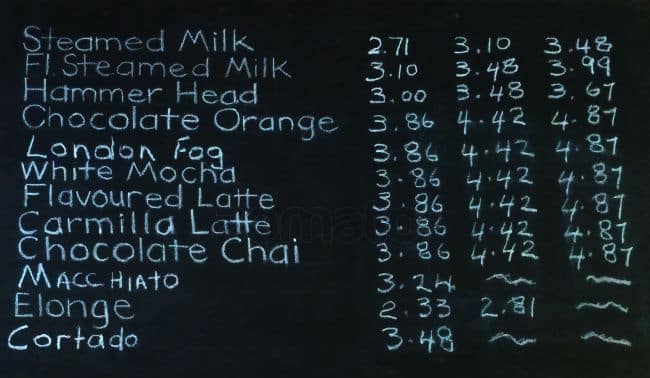 Steamed Milk 2.71 3.10 3.48
Fl. Steamed Milk 3.10 3.48 3.99
Hammer Head 3.00 3.48 3.67
Chocolate Orange 3.86 4.42 4.87
London Fog 3.86 4.42 4.87
White Mocha 3.86 4.42 4.87
Flavoured Latte 3.86 4.42 4.87
Carmilla Latte 3.86 4.42 4.87
Chocolate Chai 3.86 4.42 4.87
MACCHIATO 3.24 ~ ~
Elonge 2.33 2.81 ~
Cortado 3.48 ~ ~